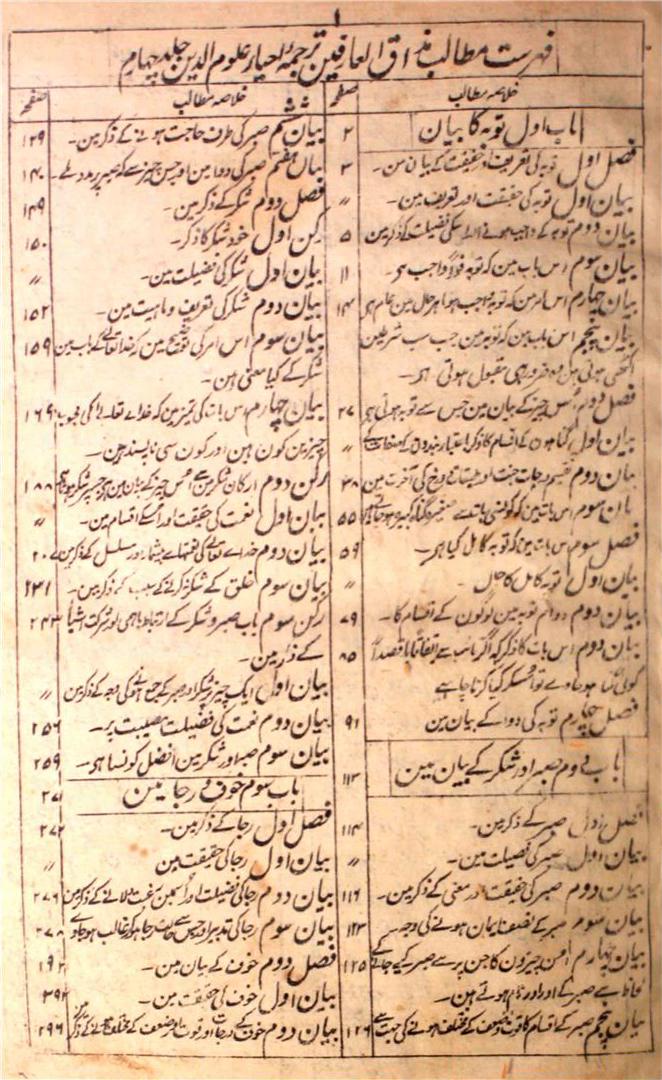 ۱
فہرست مطالب مذاق العارفین ترجمۂ احیاء علوم الدین جلد چہارم
خلاصہ مطالب صفحہ
باب اول توبہ کا بیان ۲
فصل اول توبہ کی تعریف اور حقیقت کے بیان مین۔ ۳
بیان اول توبہ کی حقیقت اور تعریف مین۔ 〃
بیان دوم توبہ کے واجب ہونے اور اسکی فضیلت کے ذکر مین ۵
بیان سوم اس باب مین کہ توبہ فوراً واجب ہی۔ ۱۱
بیان چہارم اس امر مین کہ توبہ کا وجوب ہر حال مین عام ہی ۱۴
بیان پنجم اس باب مین کہ توبہ مین جب سب شرطین
اکٹھی ہوتی ہین ضرور ہی مقبول ہوتی ہی۔
فصل دوم اُس چیز کے بیان مین جس سے توبہ ہوتی ہی ۲۷
بیان اول گناہون کے اقسام کا ذکر باعتبار بندون کے صفات کے 〃
بیان دوم تقسیم درجات جنت اور دوزخ کی آخرت مین ۳۸
بیان سوم اس بات مین کہ کونسی بات سے صغیرہ گناہ کبیرہ ہو جاتے ہین ۵۵
فصل سوم اس بات مین کہ توبہ کامل کیا ہی۔ ۵۹
بیان اول توبہ کامل کا حال۔ 〃
بیان دوم دوام توبہ مین لوگون کے اقسام کا۔ ۷۹
بیان دوم اس بات کا ذکر کہ اگر تائب سے اتفاقاً یا قصداً ۸۵
کوئی گناہ ہو جاوے تو اُسکو کیا کرنا چاہیے
فصل چہارم توبہ کی دوا کے بیان مین ۹۱
باب دوم صبر اور شکر کے بیان مین ۱۱۳
فصل اول صبر کے ذکر مین۔ ۱۱۴
بیان اول صبر کی فضیلت مین۔ 〃
بیان دوم صبر کی حقیقت اور معنی کے ذکر مین۔ ۱۱۶
بیان سوم صبر کے نصف ایمان ہونے کی وجہ ۱۲۳
بیان چہارم اُن چیزون کا جن پر سے صبر کیے جانے کے ۱۲۵
لحاظ سے صبر کے اور اور نام ہوتے ہین۔
بیان پنجم صبر کے اقسام کا قوت و ضعف کے مختلف ہونے کی جہت سے ۱۲۶
خلاصہ مطالب صفحہ
بیان ششم صبر کی طرف حاجت ہونے کے ذکر مین۔ ۱۲۹
بیان ہفتم صبر کی دوا مین اور جس چیز سے کہ صبر پر مدد ملے۔ ۱۴۰
فصل دوم شکر کے ذکر مین۔ ۱۴۹
رکن اول خود شکر کا ذکر۔ ۱۵۰
بیان اول شکر کی فضیلت مین۔ 〃
بیان دوم شکر کی تعریف و ماہیت مین۔ ۱۵۲
بیان سوم اس امر کی توضیح مین کہ خدا تعالیٰ کے باب مین ۱۵۹
شکر کے کیا معنی ہین۔
بیان چہارم اس بات کی تمیز مین کہ خداے تعالیٰ کی محبوب ۱۶۹
چیزین کون ہین اور کون سی ناپسند ہین۔
رکن دوم ارکان شکر مین سے اُس چیز کے بیان مین ہی جسپر شکر ہوتا ہی ۱۸۸
بیان اول نعمت کی حقیقت اور اُسکے اقسام مین۔ 〃
بیان دوم خداے تعالیٰ کی نعمتہاے بیشمار اور مسلسل کے ذکر مین ۲۰۷
بیان سوم خلق کے شکر نہ کرنے کے سبب کے ذکر مین۔ ۲۳۱
رکن سوم باب صبر و شکر کے ارتباط باہمی اور شرکت اشیا ۲۴۳
کے ذکر مین۔
بیان اول ایک چیز پر شکر اور صبر کے جمع ہونے کی وجہ کے ذکر مین 〃
بیان دوم نعمت کی فضیلت مصیبت پر۔ ۲۵۶
بیان سوم صبر اور شکر مین افضل کونسا ہی۔ ۲۵۹
باب سوم خوف و رجا مین ۲۷۱
فصل اول رجا کے ذکر مین۔ ۲۷۲
بیان اول رجا کی حقیقت مین 〃
بیان دوم رجا کی فضیلت اور اُسمین رغبت دلانے کے ذکر مین ۲۷۶
بیان سوم رجا کی تدبیر اور جس سے حالت رجا کو غالب ہو جاوے ۲۷۸
فصل دوم خوف کے بیان مین۔ ۱۹۲
بیان اول خوف کی حقیقت مین۔ ۳۹۲
بیان دوم خوف کے درجات اور قوت اور ضعف کے مختلف ہونے کے ذکر مین ۲۹۶